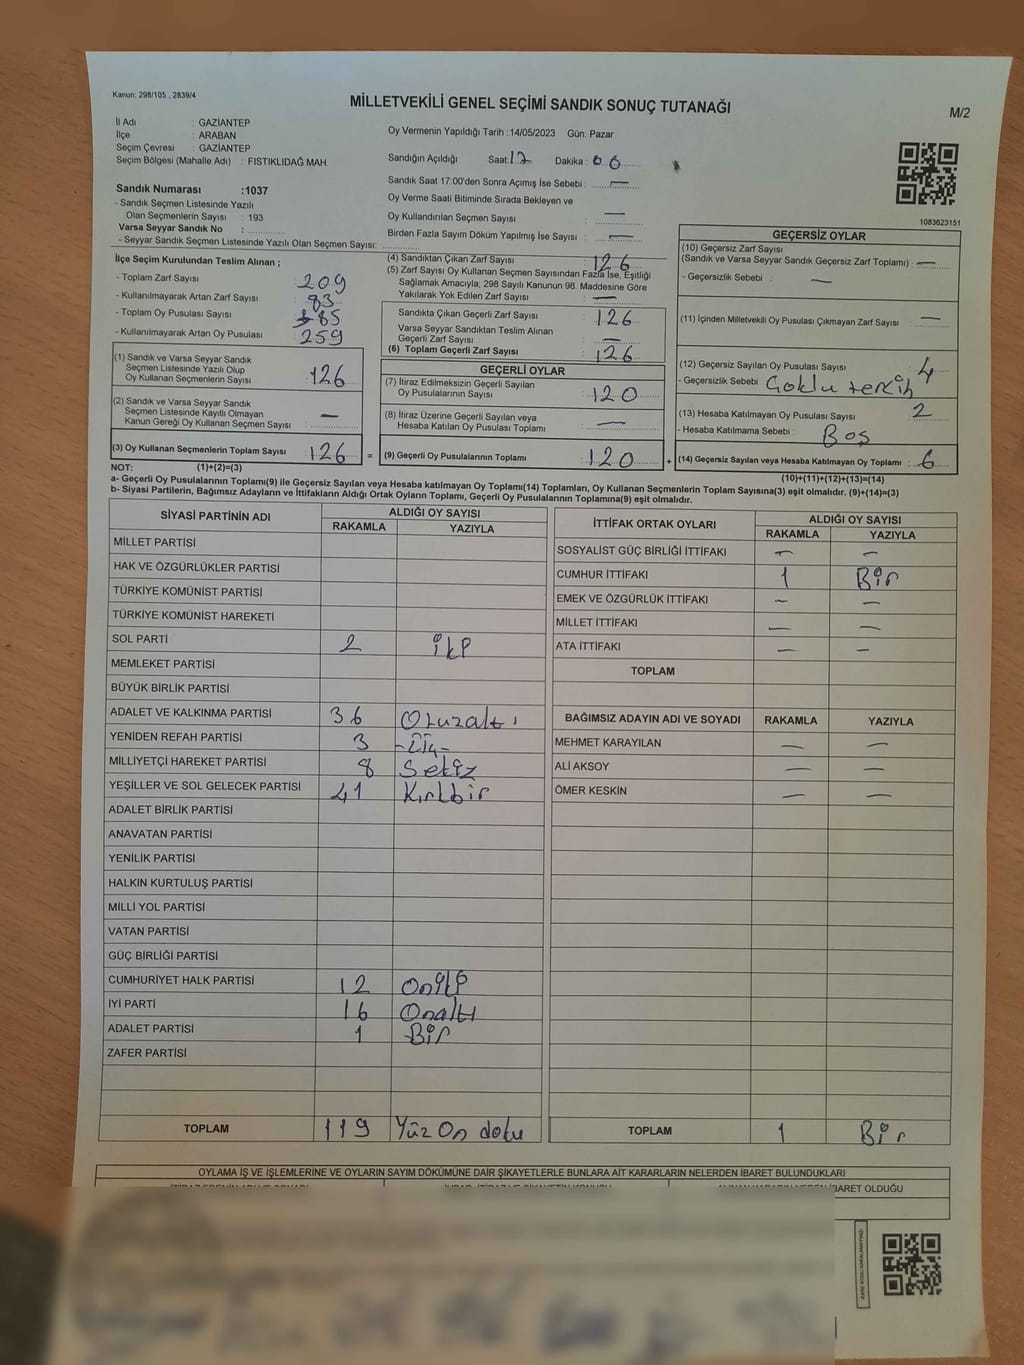 Kanun: 298/105 , 2839/4
MİLLETVEKİLİ GENEL SEÇİMİ SANDIK SONUÇ TUTANAĞI
M/2
İl Adı : GAZİANTEP
İlçe : ARABAN
Seçim Çevresi : GAZİANTEP
Seçim Bölgesi (Mahalle Adı) : FISTIKLIDAĞ MAH.
Sandık Numarası :1037
- Sandık Seçmen Listesinde Yazılı
Olan Seçmenlerin Sayısı : 193
Varsa Seyyar Sandık No :
- Seyyar Sandık Seçmen Listesinde Yazılı Olan Seçmen Sayısı:
Oy Vermenin Yapıldığı Tarih :14/05/2023 Gün: Pazar
Sandığın Açıldığı Saat:17 Dakika: 06
Sandık Saat 17:00'den Sonra Açımış İse Sebebi : —
Oy Verme Saati Bitiminde Sırada Bekleyen ve
Oy Kullandırılan Seçmen Sayısı : —
Birden Fazla Sayım Döküm Yapılmış İse Sayısı : —
1083623151
İlçe Seçim Kurulundan Teslim Alınan ;
- Toplam Zarf Sayısı : 209
- Kullanılmayarak Artan Zarf Sayısı : 83
- Toplam Oy Pusulası Sayısı : 385
- Kullanılmayarak Artan Oy Pusulası : 259
(1) Sandık ve Varsa Seyyar Sandık
Seçmen Listesinde Yazılı Olup
Oy Kullanan Seçmenlerin Sayısı : 126
(2) Sandık ve Varsa Seyyar Sandık
Seçmen Listesinde Kayıtlı Olmayan
Kanun Gereği Oy Kullanan Seçmen Sayısı : —
(3) Oy Kullanan Seçmenlerin Toplam Sayısı : 126 =
(4) Sandıktan Çıkan Zarf Sayısı : 126
(5) Zarf Sayısı Oy Kullanan Seçmen Sayısından Fazla İse, Eşitliği
Sağlamak Amacıyla; 298 Sayılı Kanunun 98. Maddesine Göre
Yakılarak Yok Edilen Zarf Sayısı : —
Sandıkta Çıkan Geçerli Zarf Sayısı : 126
Varsa Seyyar Sandıktan Teslim Alınan
Geçerli Zarf Sayısı : —
(6) Toplam Geçerli Zarf Sayısı : 126
GEÇERLİ OYLAR
(7) İtiraz Edilmeksizin Geçerli Sayılan
Oy Pusulalarının Sayısı : 120
(8) İtiraz Üzerine Geçerli Sayılan veya
Hesaba Katılan Oy Pusulası Toplamı : —
(9) Geçerli Oy Pusulalarının Toplamı : 120 +
GEÇERSİZ OYLAR
(10) Geçersiz Zarf Sayısı
(Sandık ve Varsa Seyyar Sandık Geçersiz Zarf Toplamı) : —
- Geçersizlik Sebebi : —
(11) İçinden Milletvekili Oy Pusulası Çıkmayan Zarf Sayısı : —
(12) Geçersiz Sayılan Oy Pusulası Sayısı : 4
- Geçersizlik Sebebi : Çoklu tercih
(13) Hesaba Katılmayan Oy Pusulası Sayısı : 2
- Hesaba Katılmama Sebebi : Boş
(14) Geçersiz Sayılan veya Hesaba Katılmayan Oy Toplamı : 6
NOT: (1)+(2)=(3) (10)+(11)+(12)+(13)=(14)
a- Geçerli Oy Pusulalarının Toplamı(9) ile Geçersiz Sayılan veya Hesaba katılmayan Oy Toplamı(14) Toplamları, Oy Kullanan Seçmenlerin Toplam Sayısına(3) eşit olmalıdır. (9)+(14)=(3)
b- Siyasi Partilerin, Bağımsız Adayların ve İttifakların Aldığı Ortak Oyların Toplamı, Geçerli Oy Pusulalarının Toplamına(9) eşit olmalıdır.
SİYASİ PARTİNİN ADI ALDIĞI OY SAYISI
RAKAMLA YAZIYLA
MİLLET PARTİSİ
HAK VE ÖZGÜRLÜKLER PARTİSİ
TÜRKİYE KOMÜNİST PARTİSİ
TÜRKİYE KOMÜNİST HAREKETİ
SOL PARTİ 2 iki
MEMLEKET PARTİSİ
BÜYÜK BİRLİK PARTİSİ
ADALET VE KALKINMA PARTİSİ 36 Otuzaltı
YENİDEN REFAH PARTİSİ 3 -Üç-
MİLLİYETÇİ HAREKET PARTİSİ 8 Sekiz
YEŞİLLER VE SOL GELECEK PARTİSİ 41 Kırkbir
ADALET BİRLİK PARTİSİ
ANAVATAN PARTİSİ
YENİLİK PARTİSİ
HALKIN KURTULUŞ PARTİSİ
MİLLİ YOL PARTİSİ
VATAN PARTİSİ
GÜÇ BİRLİĞİ PARTİSİ
CUMHURİYET HALK PARTİSİ 12 Oniki
İYİ PARTİ 16 Onaltı
ADALET PARTİSİ 1 -Bir
ZAFER PARTİSİ
TOPLAM 119 Yüz On doku
İTTİFAK ORTAK OYLARI ALDIĞI OY SAYISI
RAKAMLA YAZIYLA
SOSYALİST GÜÇ BİRLİĞİ İTTİFAKI — —
CUMHUR İTTİFAKI 1 Bir
EMEK VE ÖZGÜRLÜK İTTİFAKI — —
MİLLET İTTİFAKI — —
ATA İTTİFAKI — —
TOPLAM
BAĞIMSIZ ADAYIN ADI VE SOYADI RAKAMLA YAZIYLA
MEHMET KARAYILAN — —
ALİ AKSOY — —
ÖMER KESKİN — —
TOPLAM 1 Bir
OYLAMA İŞ VE İŞLEMLERİNE VE OYLARIN SAYIM DÖKÜMÜNE DAİR ŞİKAYETLERLE BUNLARA AİT KARARLARIN NELERDEN İBARET BULUNDUKLARI
İBARET OLDUĞU
KARE KODU KARALAMAYINIZ!